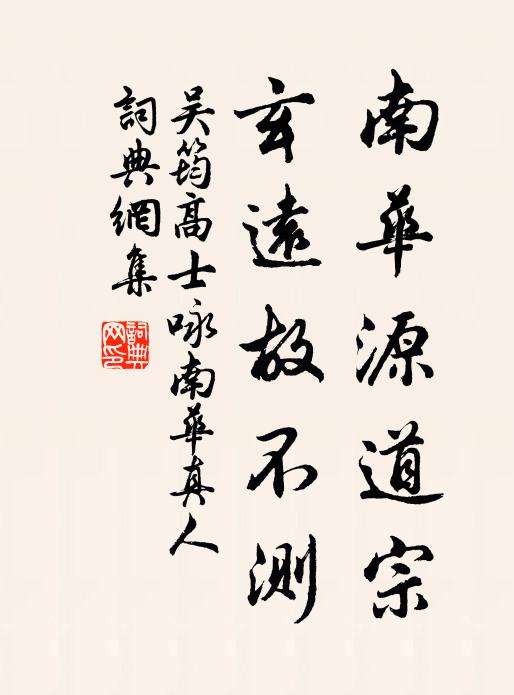 南華源道宗
玄遠故不測
吴筠高士咏南華真人
詞典網集
詞典網印